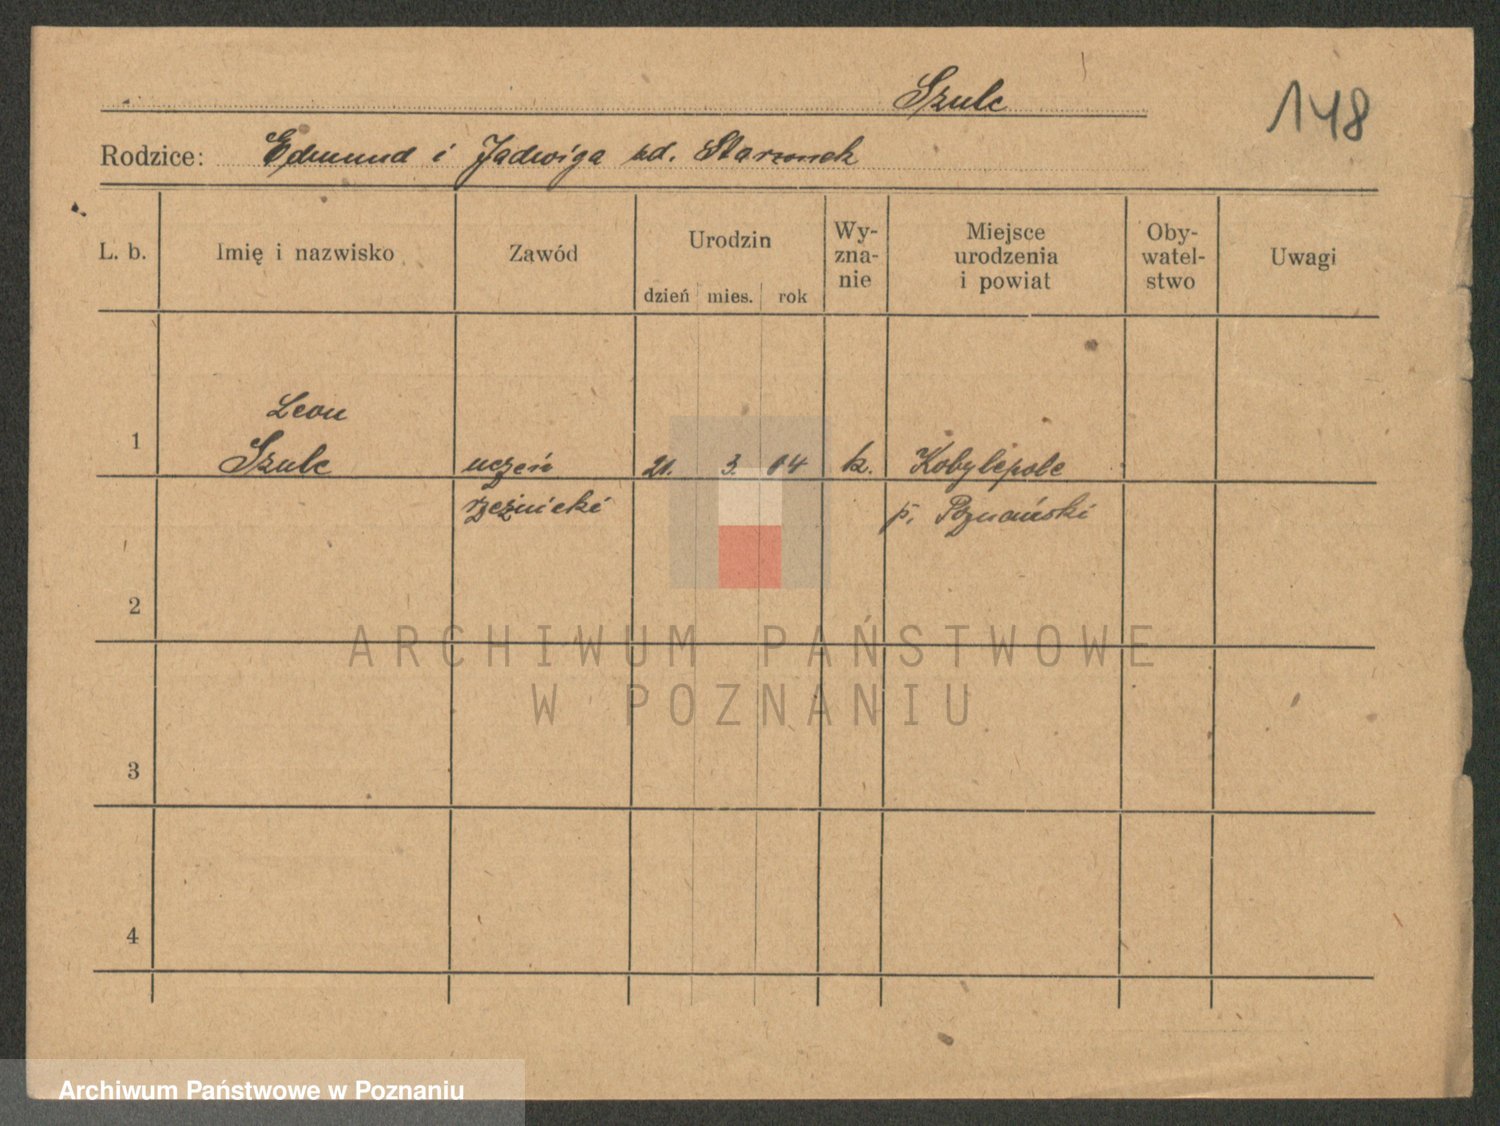 Szulc
148
Rodzice: Edmund i Jadwiga zd.
L. b.
Imię i nazwisko
Zawód
Urodzin
dzień mies. rok
Wy-
zna-
nie
Miejsce
urodzenia
i powiat
Oby-
watel-
stwo
Uwagi
1
Leon
Szulc
uczeń
rzeźnicki
21. 3. 04
k.
Kobylepole
p. Poznański
2
3
4
ARCHIWUM PAŃSTWOWE
W POZNANIU
Archiwum Państwowe w Poznaniu